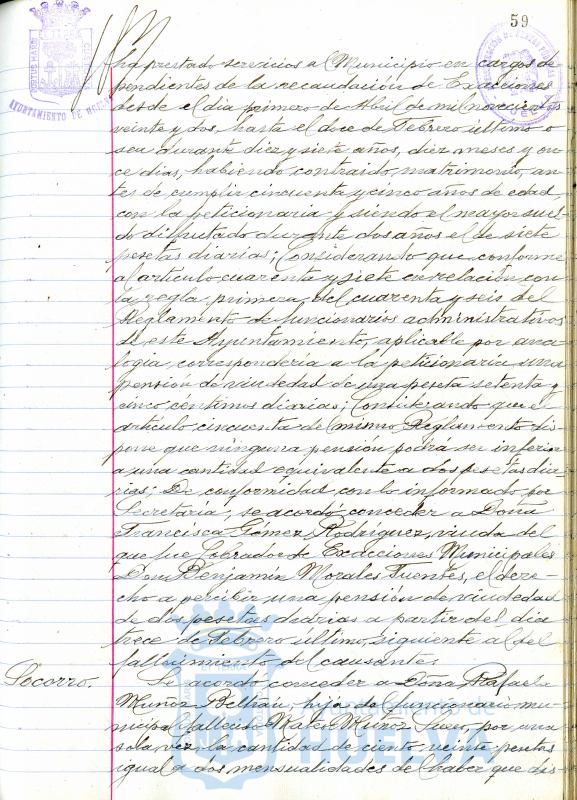 59
AYUNTAMIENTO DE HUELVA
ha prestado servicios al Municipio en cargos de-
pendientes de la recaudación de Exacciones
desde el día primero de Abril de mil novecientos
veinte y dos, hasta el doce de Febrero último o
sea durante diez y siete años, diez meses y on-
ce días, habiendo contraido matrimonio, an-
tes de cumplir cincuenta y cinco años de edad,
con la peticionaria y siendo el mayor suel-
do disfrutado durante dos años el de siete
pesetas diarias; Considerando que conforme
al artículo cuarenta y siete en relación con
la regla primera del cuarenta y seis del
Reglamento de funcionarios administrativos
de este Ayuntamiento, aplicable por ana-
logia, correspondería a la peticionaria una
pensión de viudedad de una peseta setenta y
cinco céntimos diarias; Considerando que el
artículo cincuenta del mismo Reglamento dis-
pone que ninguna pensión podrá ser inferior
a una cantidad equivalente a dos pesetas dia-
rias; De conformidad con lo informado por
Secretaría, se acordó conceder a Doña
Francisca Gómez Rodríguez, viuda del
que fue Cobrador de Exacciones Municipales
Don Benjamín Morales Fuentes, el dere-
cho a percibir una pensión de viudedad
de dos pesetas diarias a partir del día
trece de Febrero último, siguiente al del
fallecimiento del causante.
Socorro.
Se acordó conceder a Doña Rafaela
Muñoz Beltrán, hija del funcionario mu-
nicipal fallecido Mateo Muñoz, por una
sola vez, la cantidad de ciento veinte pesetas
igual a dos mensualidades del haber que dis-
HUELVA